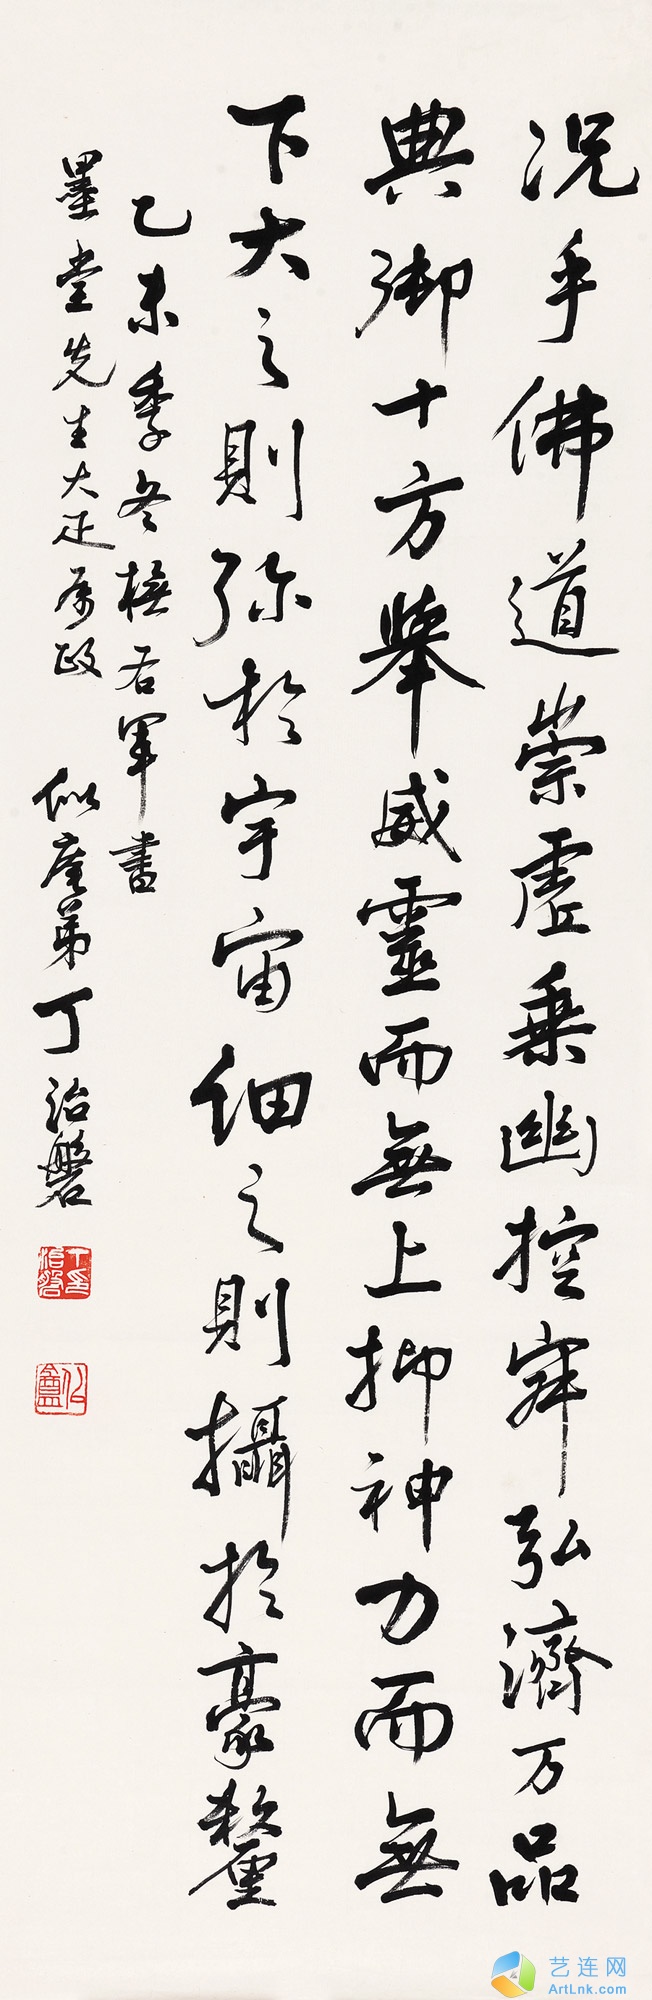 况乎佛道崇虛乘幽控寂弘濟万品
典御十方舉威靈而無上抑神力而無
下大之則弥於宇宙細之則攝於豪釐
乙未季冬橅右軍書
墨堂先生大疋属政
似庵弟丁治磐
丁治磐印
似盦
艺连网
ArtLnk.com